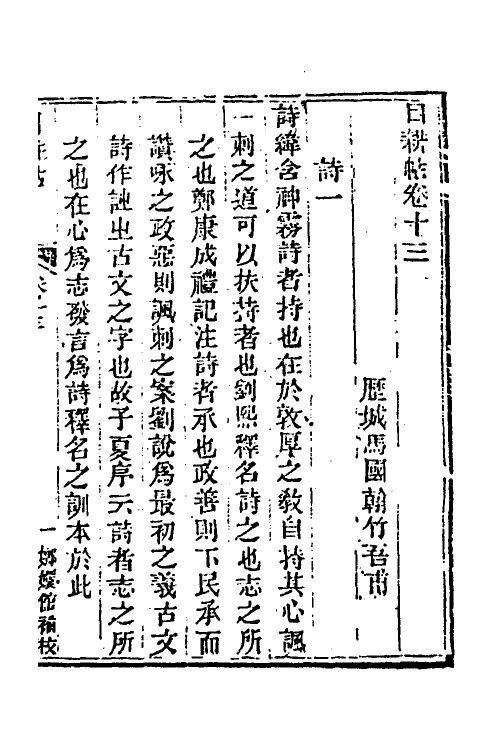 目耕帖卷十三
歷城馬國翰竹吾甫
詩一
詩緯含神霧詩者持也在於敦厚之敎自持其心諷
刺之道可以扶持者也劉熙釋名詩之也志之所
之也鄭康成禮記注詩者承也政善則下民承而
讚咏之政惡則諷刺之案劉說爲最初之義古文
詩作𧥳㞢古文之字也故子夏序云詩者志之所
之也在心爲志發言爲詩釋名之訓本於此
目耕帖
卷十三
一
嫏嬛館補校